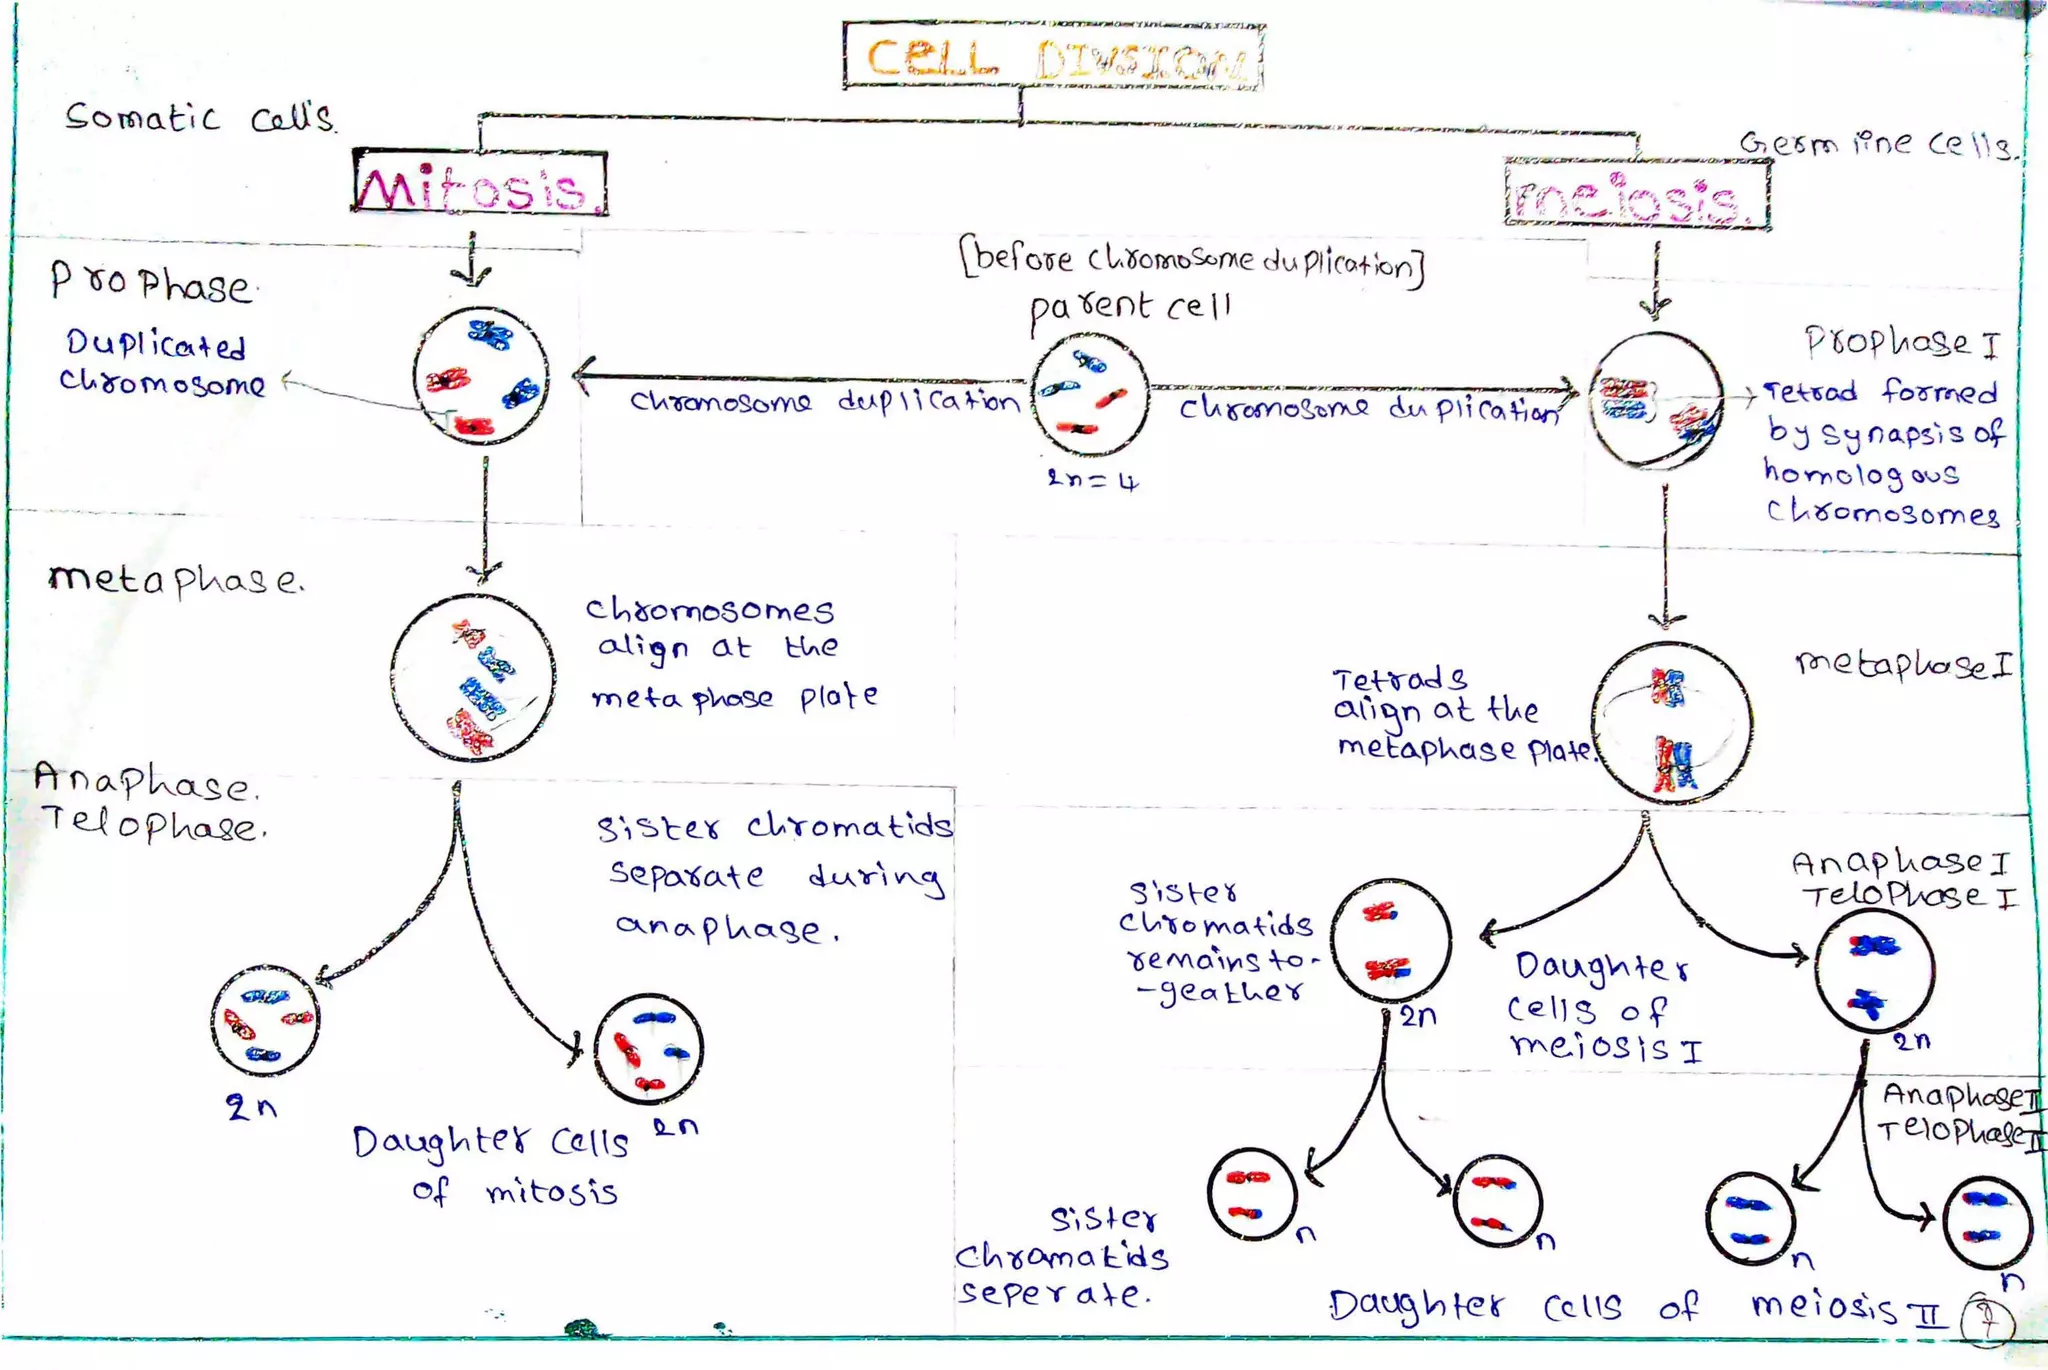 CELL DIVSION
Somatic cells.
Germline cells.
Mitosis.
meiosis.
[before chromosome duplication]
parent cell
prophase.
Duplicated
chromosome
chromosome duplication
chromosome duplication
2n = 4
Prophase I
Tetrad formed
by synapsis of
homologous
chromosomes
metaphase.
chromosomes
align at the
metaphase plate
Tetrads
align at the
metaphase plate.
metaphase I
Anaphase.
Telophase.
sister chromatids
separate during
anaphase.
2n
2n
Daughter cells
of mitosis
sister
chromatids
remains to-
-geather
Anaphase I
Telophase I
2n
Daughter
cells of
meiosis I
2n
Anaphase II
Telophase II
sister
chramatids
seperate.
n
n
n
n
Daughter cells of meiosis II
7